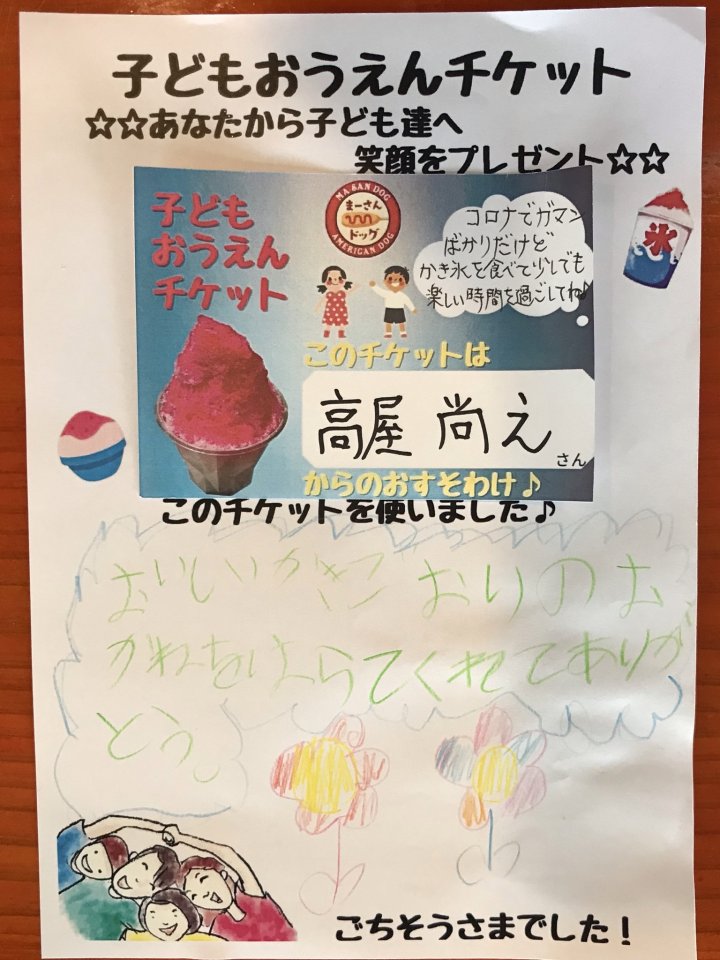 子どもおうえんチケット
☆☆あなたから子ども達へ
笑顔をプレゼント☆☆
子ども
おうえん
チケット
MA SAN DOG
まーさん
ドッグ
AMERICAN DOG
コロナでガマン
ばかりだけど
かき氷を食べて少しでも
楽しい時間を過ごしてね♪
氷
このチケットは
高屋 尚え
さん
からのおすそわけ♪
このチケットを使いました♪
おいしいかきごおりのお
かねをはらてくれてありが
とう。
ごちそうさまでした！